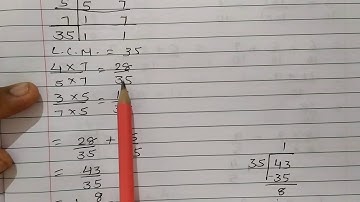 5 | 5 7
7 | 1 7
35 | 1 1
L.C.M. = 35
4 × 7 = 28
5 × 7 35
3 × 5 = 1
7 × 5 3
= 28 + 5
35 5
= 43
35
8
1
35 43
-35
8